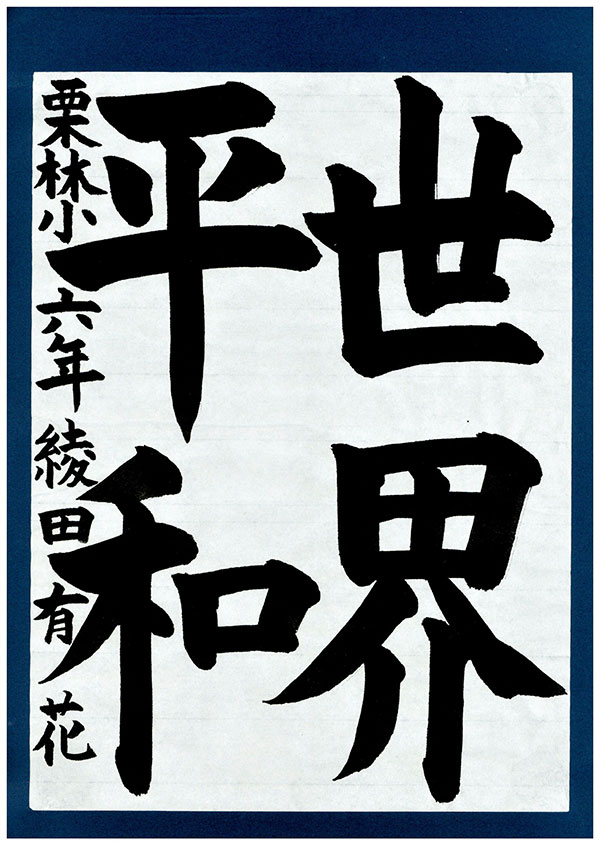 世界
平和
栗林小 六年 綾田有花